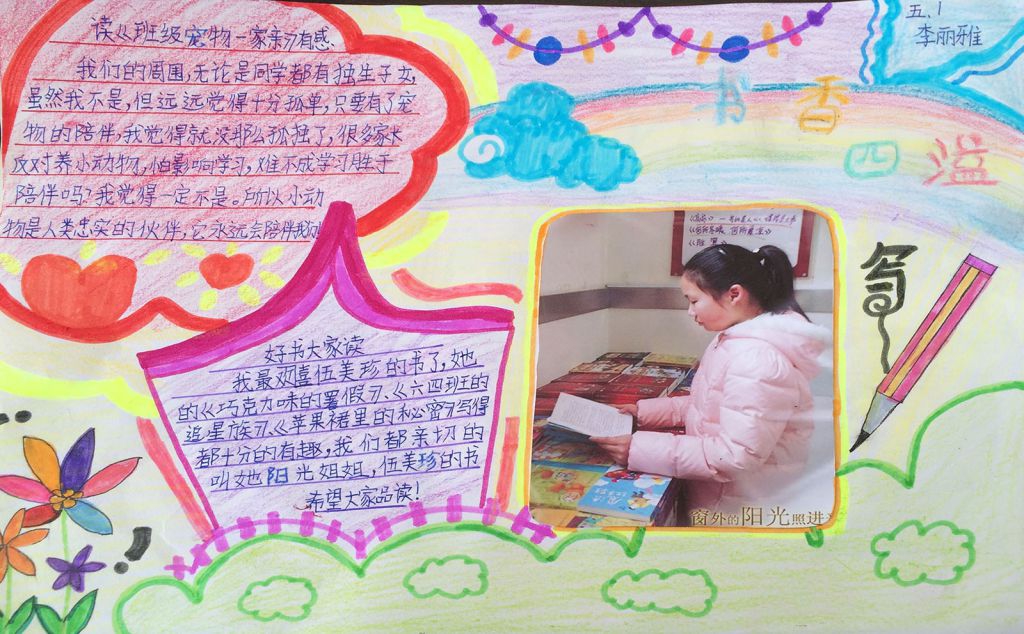 读《班级宠物一家亲》有感
我们的周围,无论是同学都有独生子女,
虽然我不是,但远远觉得十分孤单,只要有了宠
物的陪伴,我觉得就没那么孤独了,很多家长
反对养小动物,怕影响学习,难不成学习胜于
陪伴吗?我觉得一定不是。所以小动
物是人类忠实的伙伴,它永远会陪伴我们
好书大家读
我最欢喜伍美珍的书了,她
的《巧克力味的暑假》、《六四班的
追星族》《苹果裙里的秘密》写得
都十分的有趣,我们都亲切的
叫她阳光姐姐,伍美珍的书
希望大家品读!
五.1
李丽雅
书香
四溢
写
窗外的阳光照进